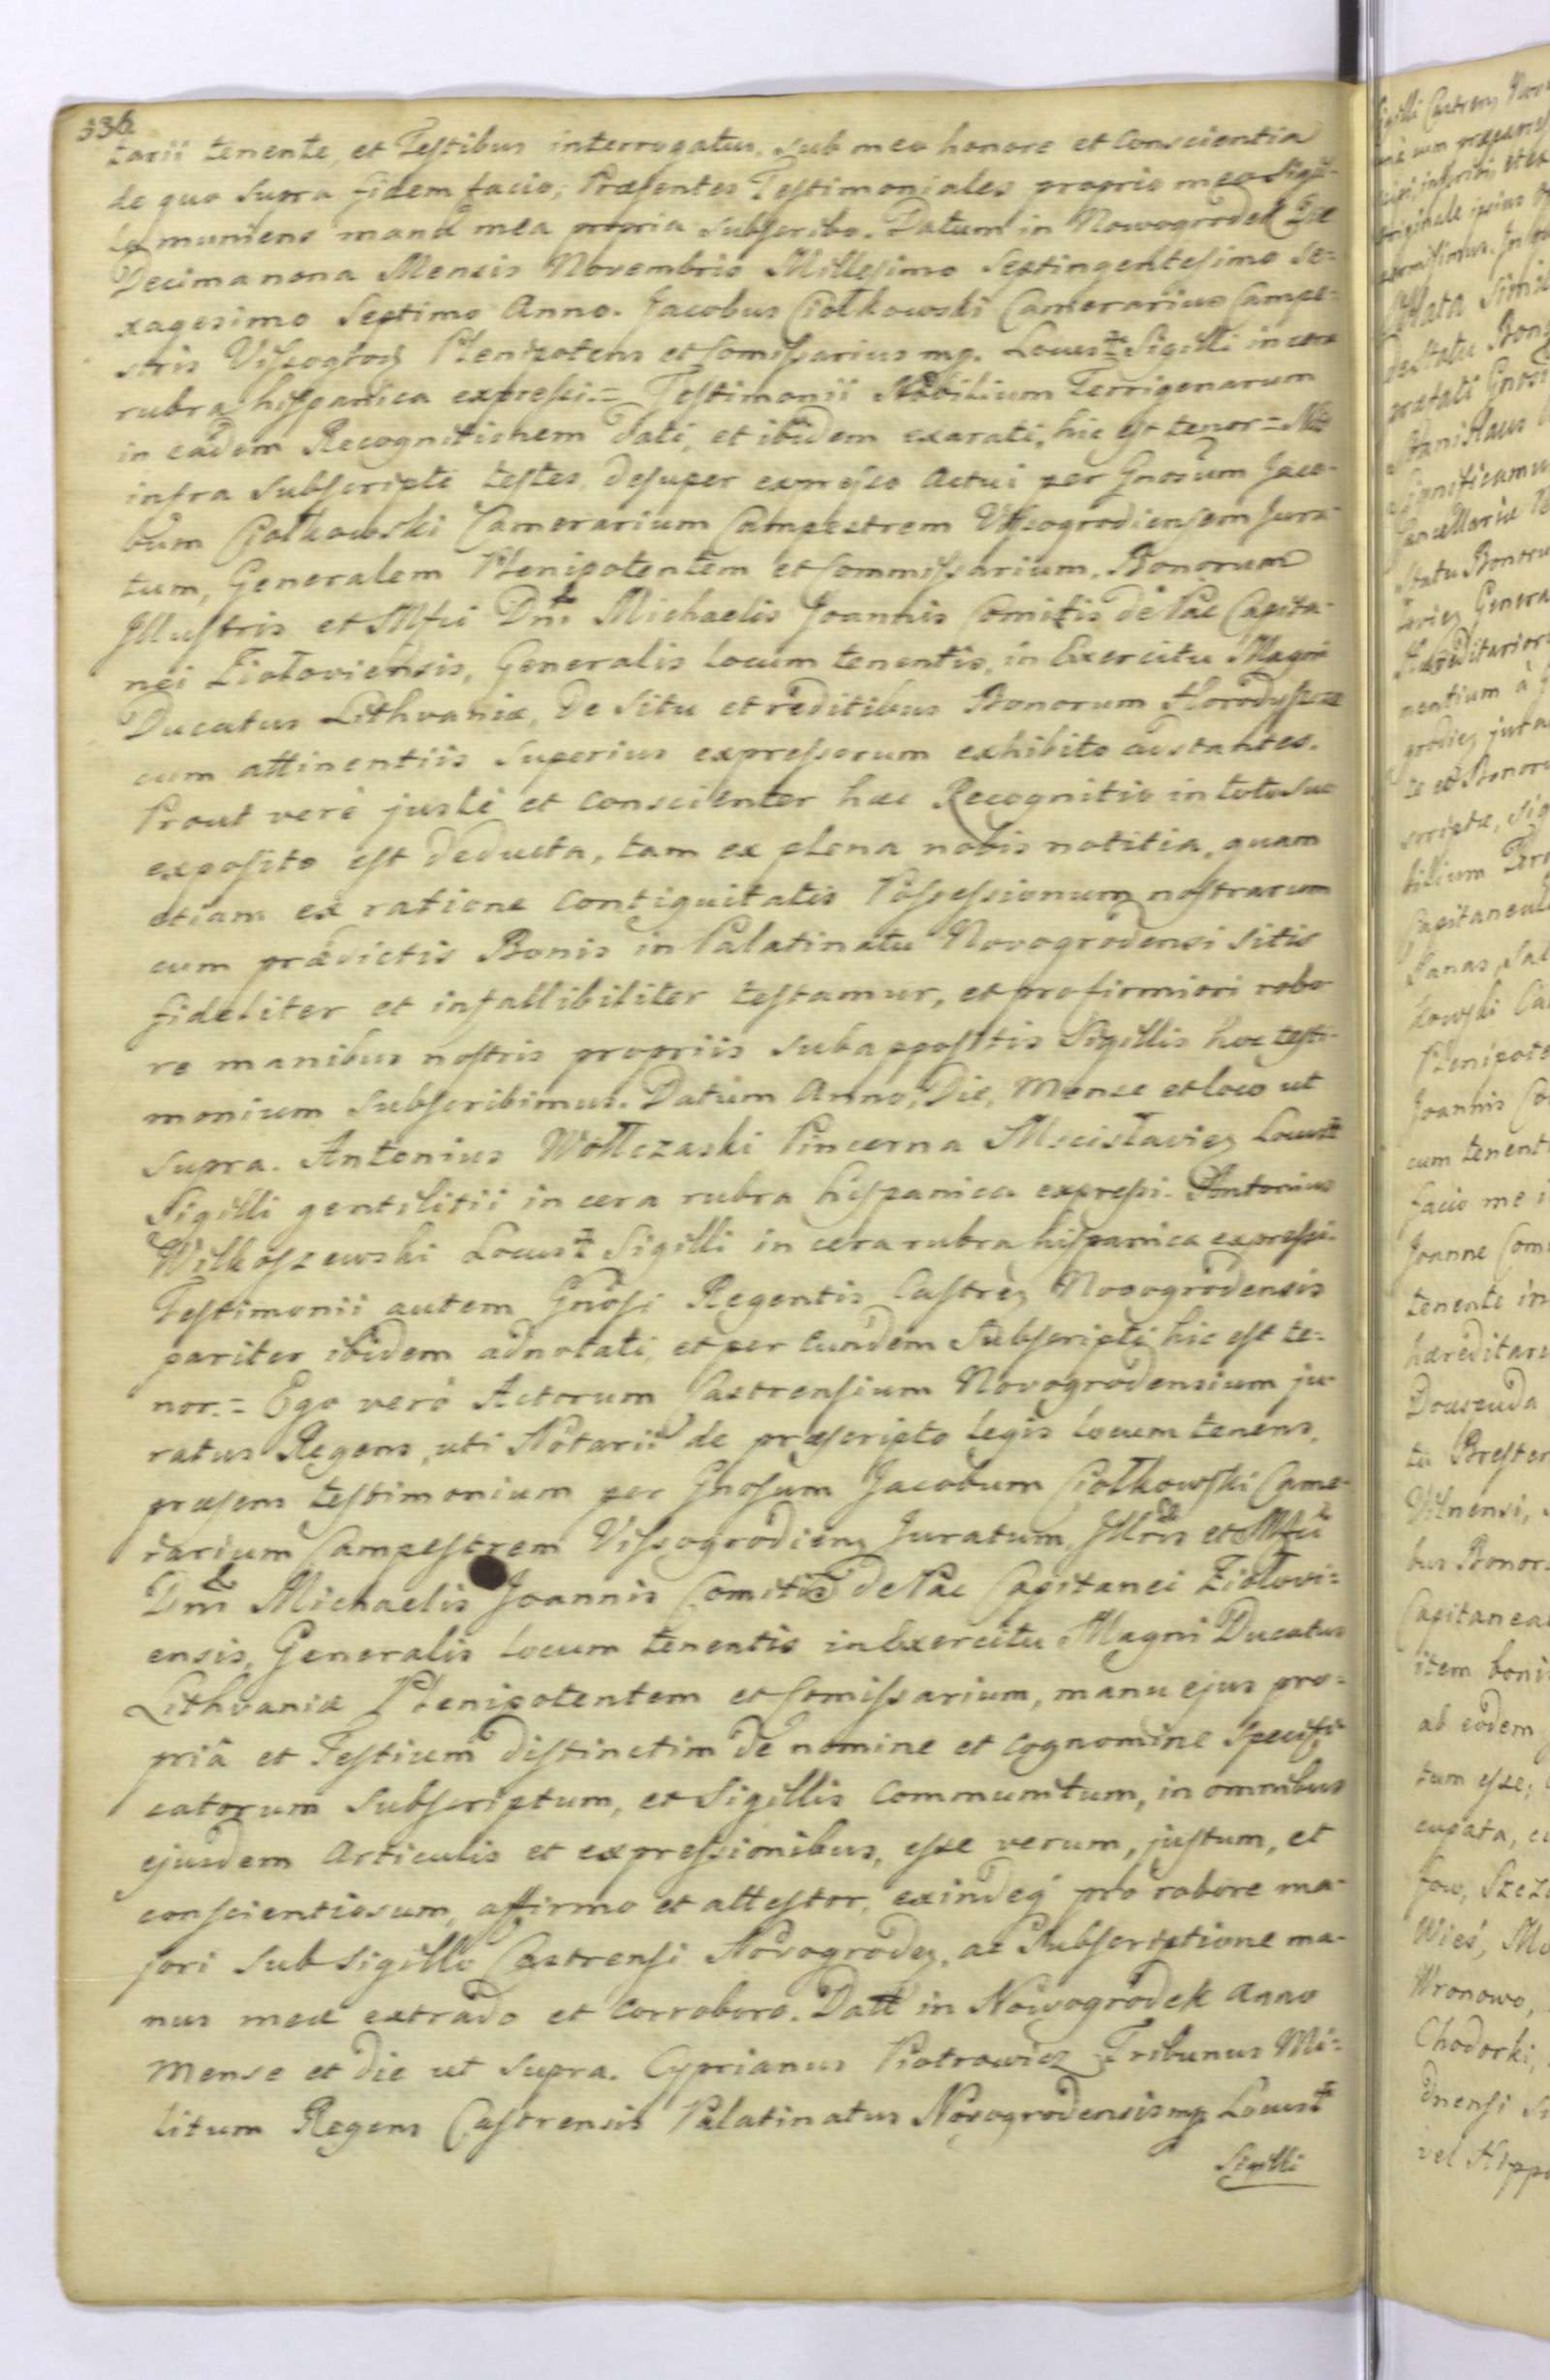 336
tarii tenente, et Testibus interrogatus, sub meo honore et Conscientia
de quo Supra fidem facio, Præsentes Testimoniales proprio meo Sigil-
lo muniens manu mea propria Subscribo. Datum in Nowogrodek Die
Decima nona Mensis Novembris Millesimo Septingentesimo Se=
xagesimo Septimo Anno. Jacobus Ciołkowski Camerarius Campe-
stris Vissogrod Plenipotens et Comissarius mp. Locus Sigilli in cera
rubra hispanica expressi.= Testimonii Nobilium Terrigenarum
in eadem Recognitionem dati, et ibidem exarati, hic est tenor = Nos
infra Subscripti testes, desuper expresso Actui per Gnosum Jaco-
bum Ciołkowski Camerarium Campestrem Vissogrodiensem Jura-
tum, Generalem Plenipotentem et Commissarium, Bonorum
Illustris et Mfci Dni Michaelis Joannis Comitis de Pac Capita-
nei Ziołoviensis, Generalis locum tenentis, in Exercitu Magni
Ducatus Lithvaniæ, De Situ et reditibus Bonorum
cum attinentiis Superius expressorum exhibito adstantes.
Prout verè justè et Conscienter hæc Recognitio in toto suo
exposito est deducta, tam ex plena nobis notitia, quam
etiam ex ratione Contiguitatis Possessionum nostrarum
cum prædictis Bonis in Palatinatu Novogrodensi Sitis
fideliter et infallibiliter testamur, et pro firmiori robo
re manibus nostris propriis Subappositis Sigillis hoc testi-
monium Subscribimus. Datum Anno, Die, Mense et loco ut
Supra. Antonius Wołłczaski Pincerna Mscisłaviez Locus
Sigilli gentilitii in cera rubra hispanica expressi. Antonius
Wilkoszewski Locus Sigilli in cera rubra hispanica expressi.
Testimonii autem Gnosi Regentis Castrez Novogrodensis
pariter ibidem adnotati, et per Eundem Subscripti hic est te=
nor.= Ego verò Actorum Castrensium Novogrodensium ju-
ratus Regens, uti Notarii de præscripto legis locum tenens,
præsens testimonium per Gnosum Jacobum Ciołkowski Came-
rarium Campestrem Vissogrodienz Juratum, Illris et Mfci
Dni Michaelis Joannis Comitis de Pac Capitanei Ziołovi=
ensis, Generalis locum tenentis in Exercitu Magni Ducatus
Lithvaniæ Plenipotentem et Comissarium, manu ejus pro=
priâ et Testium distinctim de nomine et Cognomine Specifi-
catorum Subscriptum, et Sigillis Communitum, in omnibus
ejusdem Articulis et expressionibus, esse verum, justum, et
conscientiosum, affirmo et attestor, exindeq pro robore ma-
jori sub Sigillo Castrensi Novogrodez, ac Subscriptione ma-
nus meæ extrado et Corroboro. Datt in Nowogrodek Anno
Mense et Die ut Supra. Cyprianus Piotrowicz Tribunus Mi=
litum Regens Castrensis Palatinatus Novogrodensis mp Locus
Sigilli